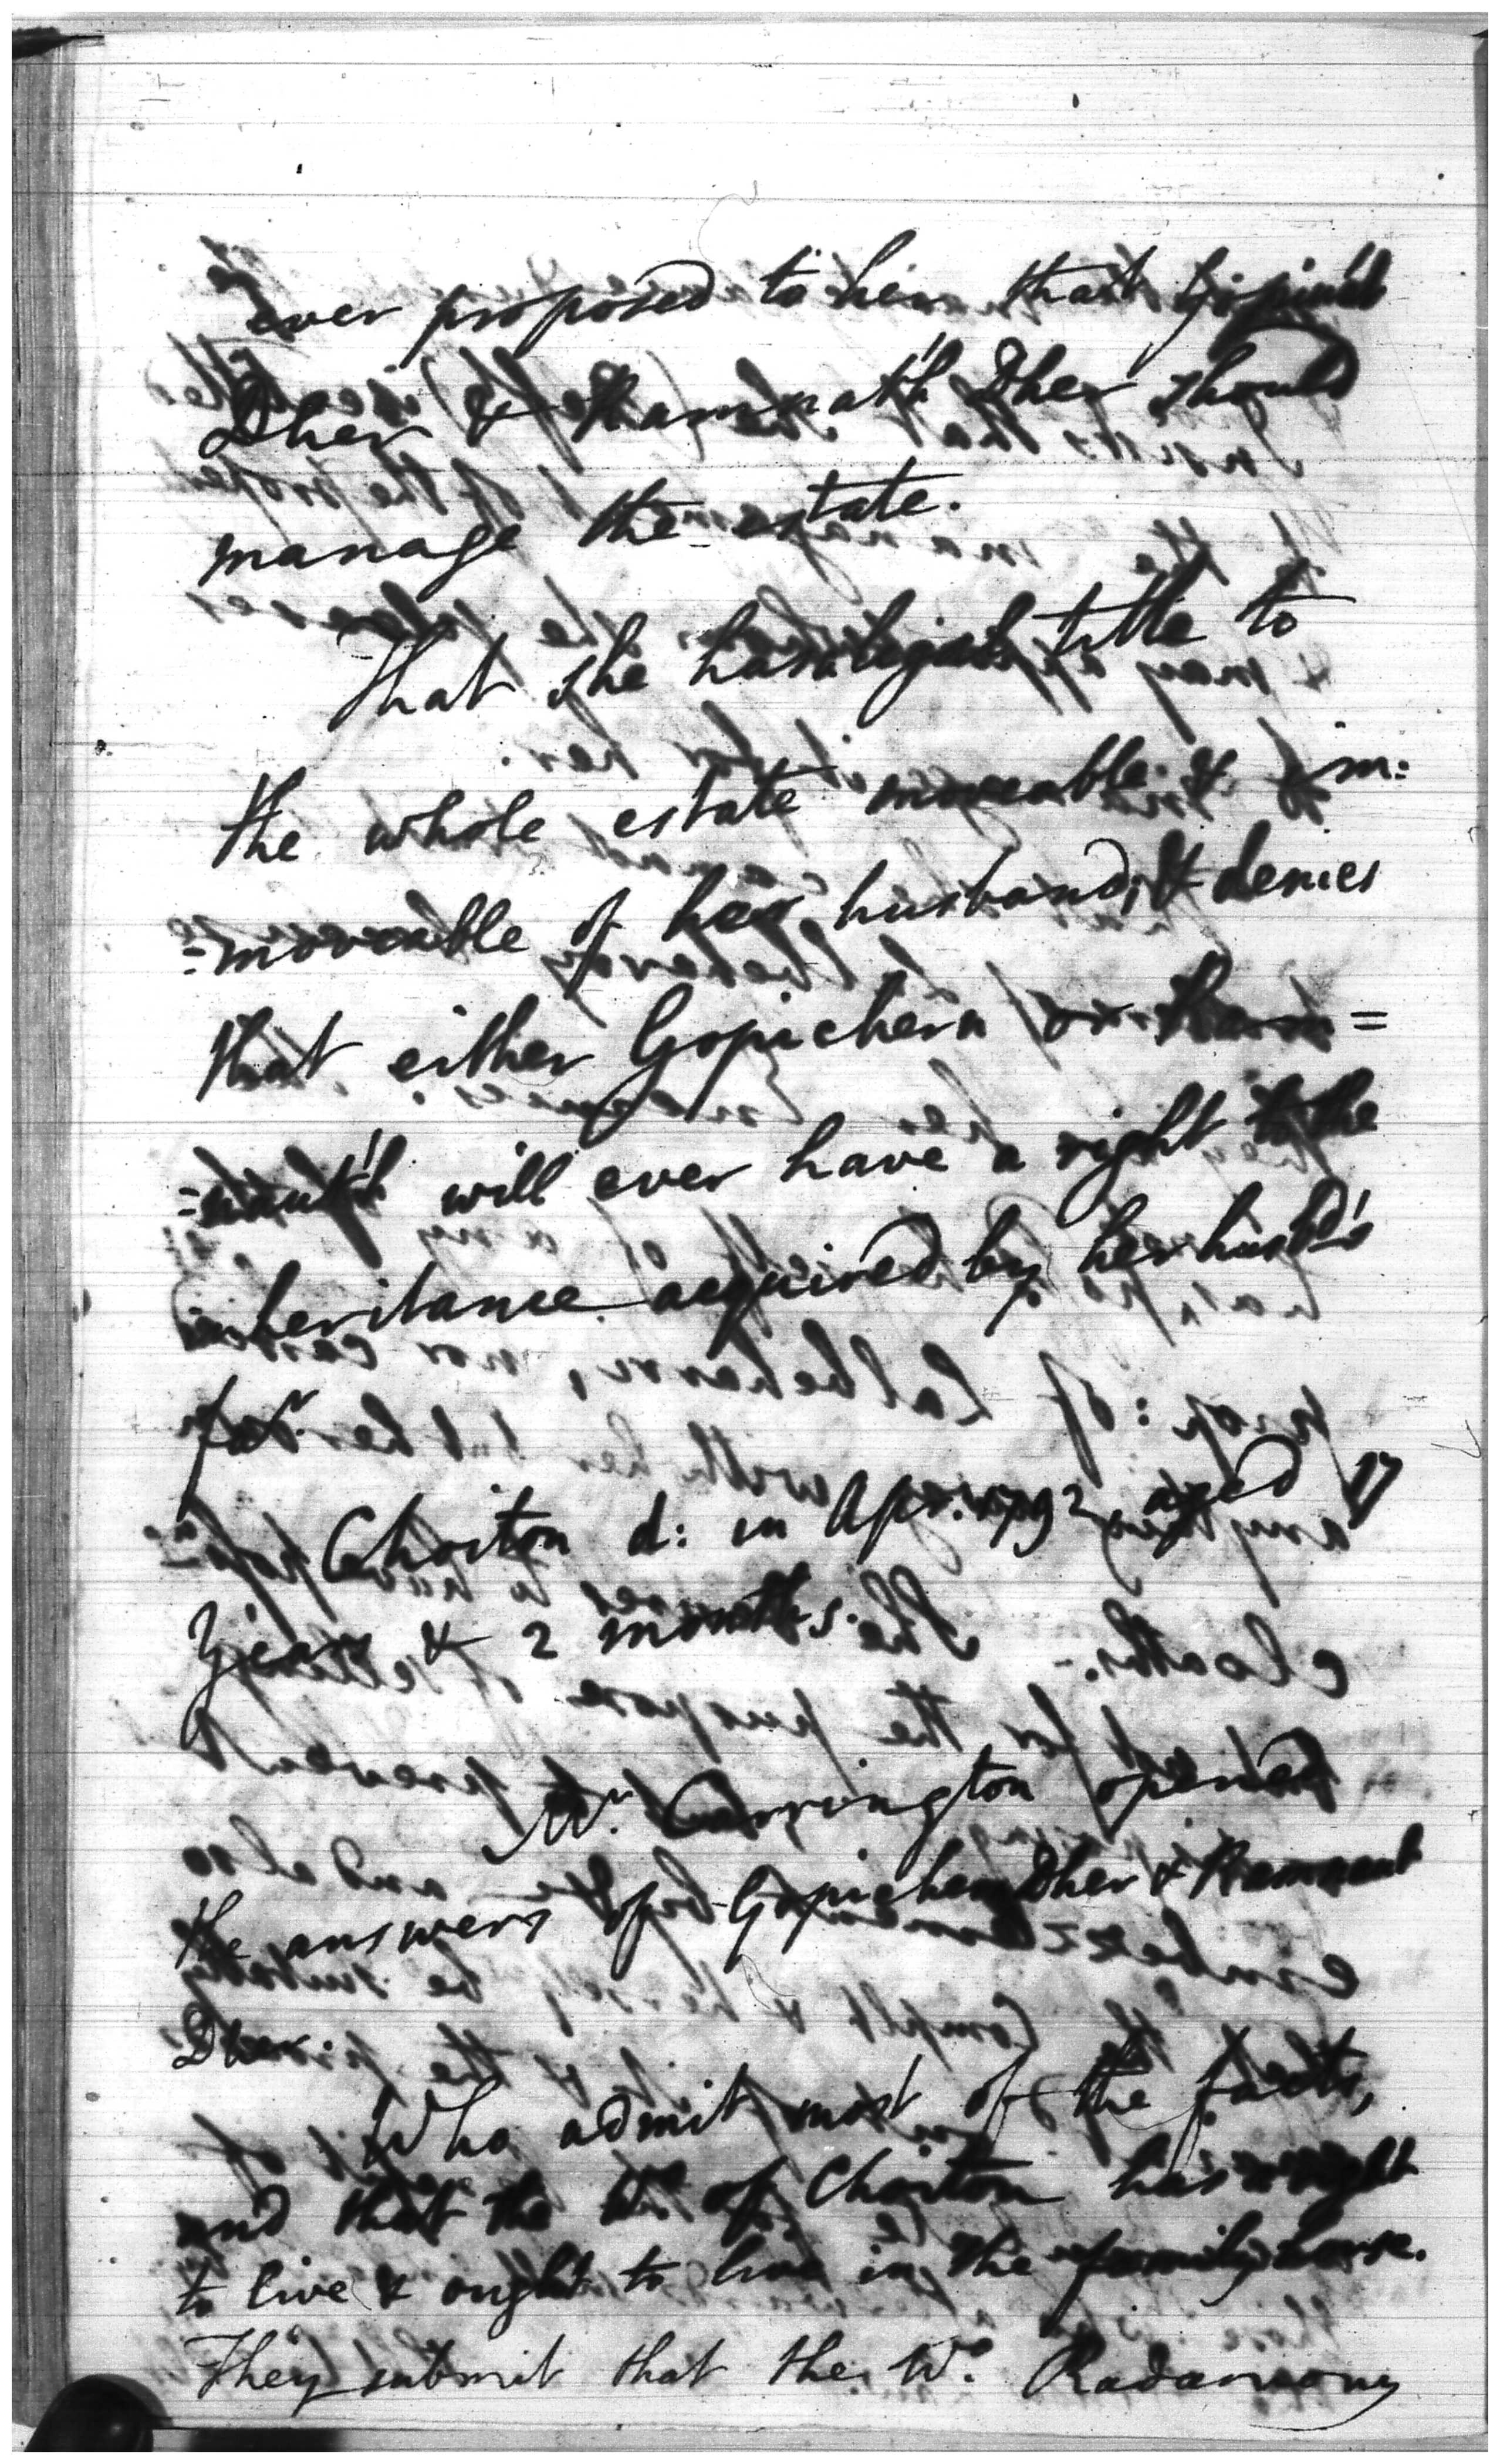 Ever proposed to her that Gopináth
Dher & Ramnath Dher should
manage the estate.
That she has a legal title to
the whole estate moveable & im:
=moveable of her husband, & denies
that either Gopichern or Ram=
=naut'h will ever have a right to the
inheritance acquired by her husbd's
far.
Choiton d: in Apr. 1792 aged 17
Years & 2 months.
Mr. Carrington opened
the answers of Gopichern Dher & Ramnaut
Dher.
Who admit most of the facts,
and that the Wo of Choiton has a right
to live & ought to live in the family house.
They submit that the Wo. Radamony